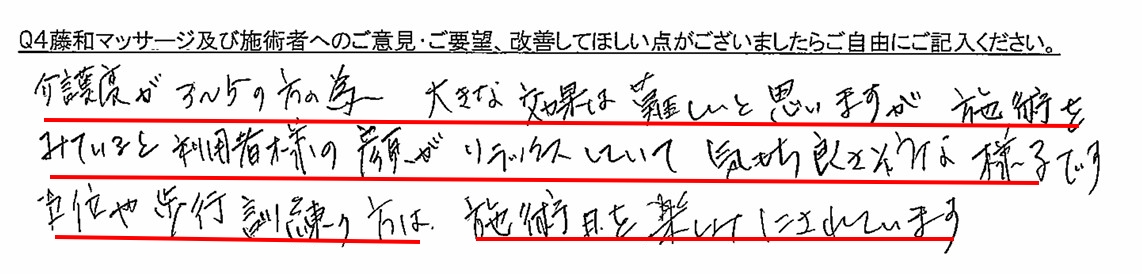 Q4藤和マッサージ及び施術者へのご意見・ご要望、改善してほしい点がございましたらご自由にご記入ください。
介護度が 3〜5の方の為 大きな効果は難しいと思いますが 施術を
みていると利用者様の顔が リラックスしていて 気持ち良さそうな様子です
立位や歩行訓練の方は 施術日を楽しみにされています